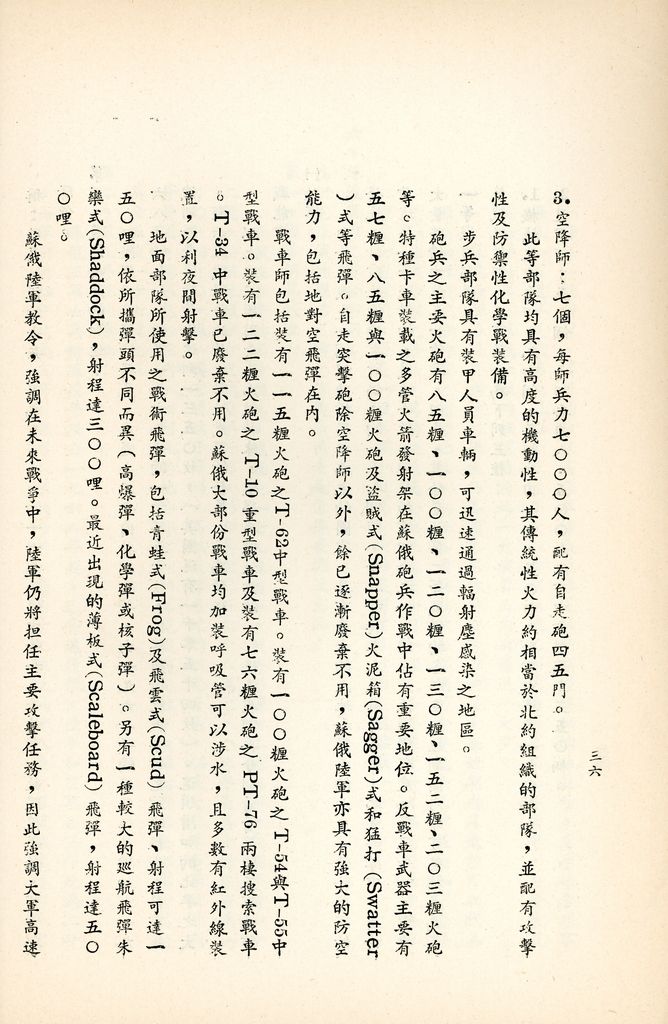 三六
3.空降師：七個，每師兵力七〇〇〇人，配有自走砲四五門。
此等部隊均具有高度的機動性，其傳統性火力約相當於北約組織的部隊，並配有攻擊
性及防禦性化學戰裝備。
步兵部隊具有裝甲人員車輛，可迅速通過輻射塵感染之地區。
砲兵之主要火砲有八五糎、一〇〇糎、一二〇糎、一三〇糎、一五二糎、二〇三糎火砲
等。特種卡車裝載之多管火箭發射架在蘇俄砲兵作戰中佔有重要地位。反戰車武器主要有
五七糎、八五糎與一〇〇糎火砲及盜賊式(Snapper)火泥箱(Sagger)式和猛打(Swatter
)式等飛彈。自走突擊砲除空降師以外，餘已逐漸廢棄不用，蘇俄陸軍亦具有強大的防空
能力，包括地對空飛彈在內。
戰車師包括裝有一一五糎火砲之T-62中型戰車。裝有一〇〇糎火砲之T-54與T-55中
型戰車。裝有一二二糎火砲之T-10重型戰車及裝有七六糎火砲之PT-76兩棲搜索戰車
。T-34中戰車已廢棄不用。蘇俄大部份戰車均加裝呼吸管可以涉水，且多數有紅外線裝
置，以利夜間射擊。
地面部隊所使用之戰術飛彈，包括青蛙式(Frog)及飛雲式(Scud)飛彈、射程可達一
五〇哩，依所攜彈頭不同而異（高爆彈、化學彈或核子彈）。另有一種較大的巡航飛彈朱
欒式(Shaddock)，射程達三〇〇哩。最近出現的薄板式(Scaleboard)飛彈，射程達五〇
〇哩。
蘇俄陸軍教令，強調在未來戰爭中，陸軍仍將担任主要攻擊任務，因此強調大軍高速